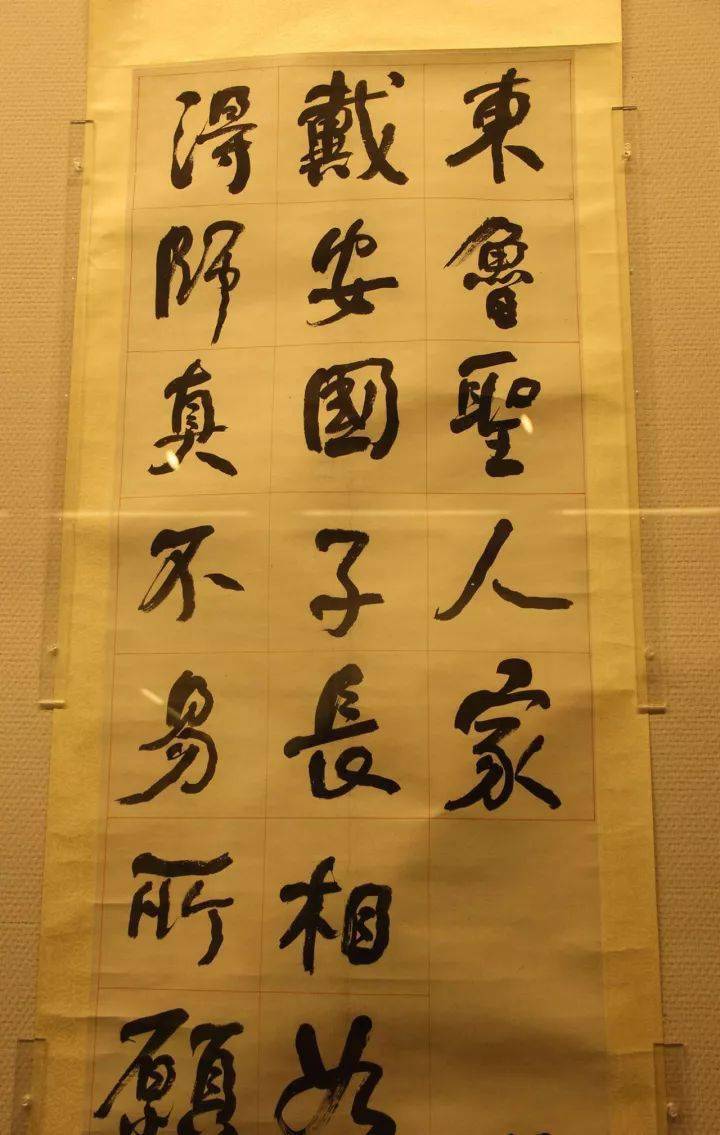 東魯聖人家
戴安國子長相如
得師真不易所願